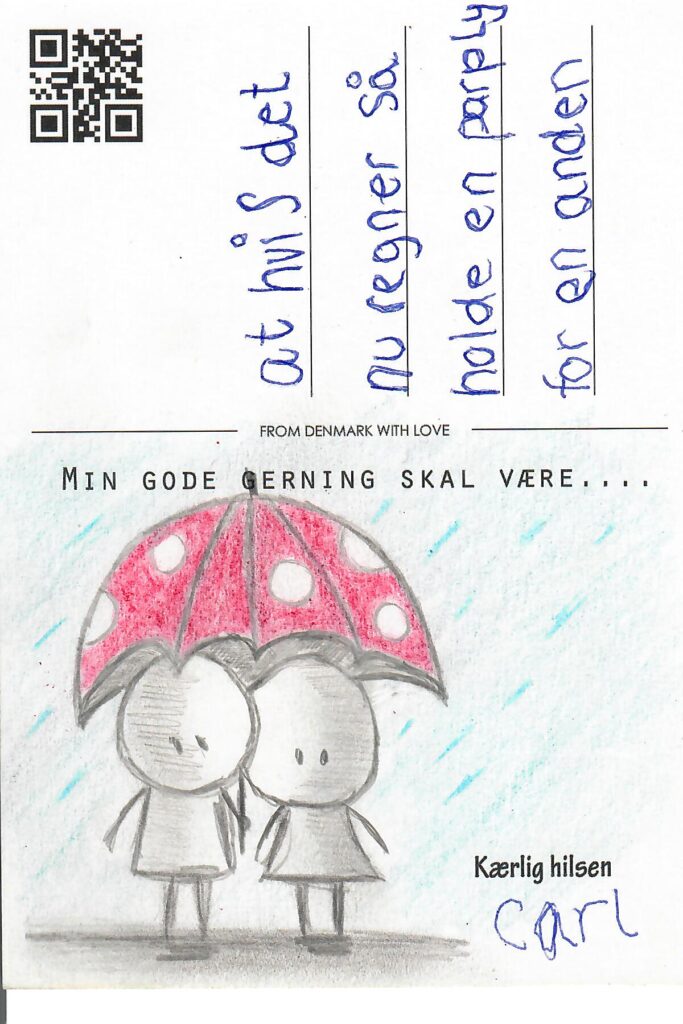 at hvis det
nu regner så
holde en parply
for en anden
FROM DENMARK WITH LOVE
MIN GODE GERNING SKAL VÆRE....
Kærlig hilsen
Carl